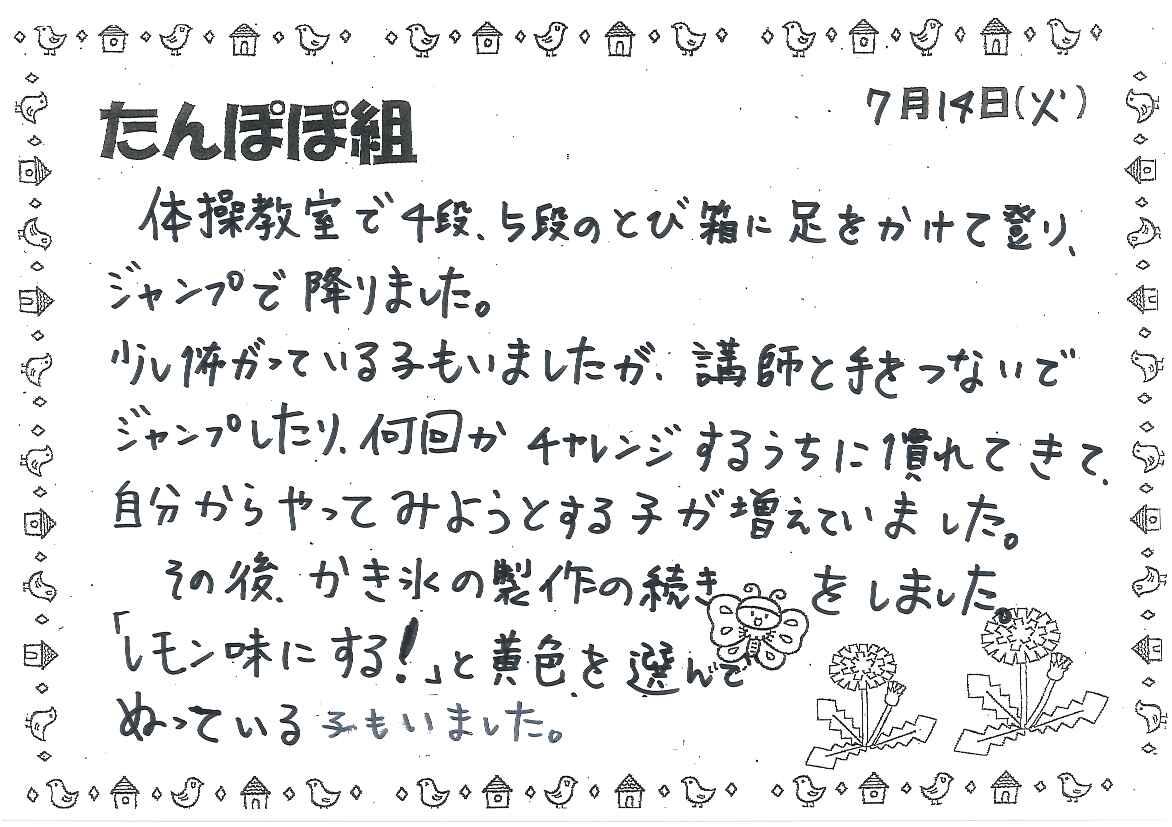 7月14日(火)
たんぽぽ組
体操教室で4段、5段のとび箱に足をかけて登り、
ジャンプで降りました。
少し怖がっている子もいましたが、講師と手をつないで
ジャンプしたり、何回かチャレンジするうちに慣れてきて、
自分からやってみようとする子が増えていました。
その後、かき氷の製作の続きをしました。
「レモン味にする!」と黄色を選んで
ぬっている子もいました。